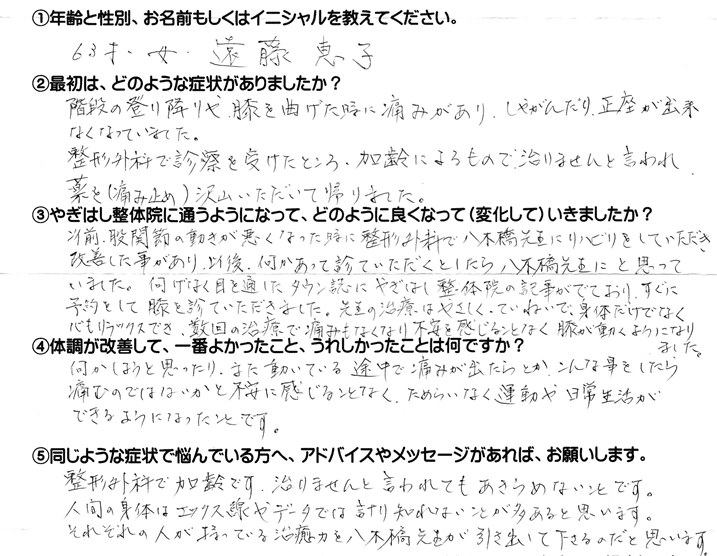 ①年齢と性別、お名前もしくはイニシャルを教えてください。
63才・女・遠藤 恵子
②最初は、どのような症状がありましたか？
階段の登り降りや、膝を曲げた時に痛みがあり、しゃがんだり、正座が出来
なくなっていました。
整形外科で診察を受けたところ、加齢によるもので治りませんと言われ
薬を(痛み止め)沢山いただいて帰りました。
③やぎはし整体院に通うようになって、どのように良くなって(変化して)いきましたか？
以前、股関節の動きが悪くなった時に整形外科で八木橋先生にリハビリをしていただき
改善した事があり、以後、何かあって診ていただくとしたら八木橋先生にと思って
いました。何げなく目を通したタウン誌にやぎはし整体院の記事がでており、すぐに
予約をして膝を診ていただきました。先生の治療はやさしく、ていねいで、身体だけでなく
心もリラックスでき、数回の治療で痛みもなくなり不安を感じることなく膝が動くようになり
ました。
④体調が改善して、一番よかったこと、うれしかったことは何ですか？
何かしようと思ったり、また動いている途中で痛みが出たらとか、こんな事をしたら
痛むのではないかと不安に感じることなく、ためらいなく運動や日常生活が
できるようになったことです。
⑤同じような症状で悩んでいる方へ、アドバイスやメッセージがあれば、お願いします。
整形外科で加齢です、治りませんと言われてもあきらめないことです。
人間の身体はエックス線やデータでは計り知れないことが多あると思います。
それぞれの人が持っている治癒力を八木橋先生が引き出して下さるのだと思います。